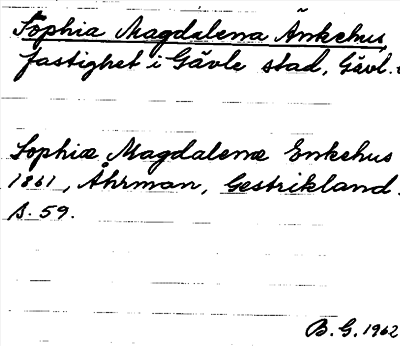 Sophia Magdalena Änkehus,
fastighet i Gävle stad, Gävl.
Sophiæ Magdalenæ Enkehus
1861, Åhrman, Gestrikland.
s. 59.
B. G. 1962